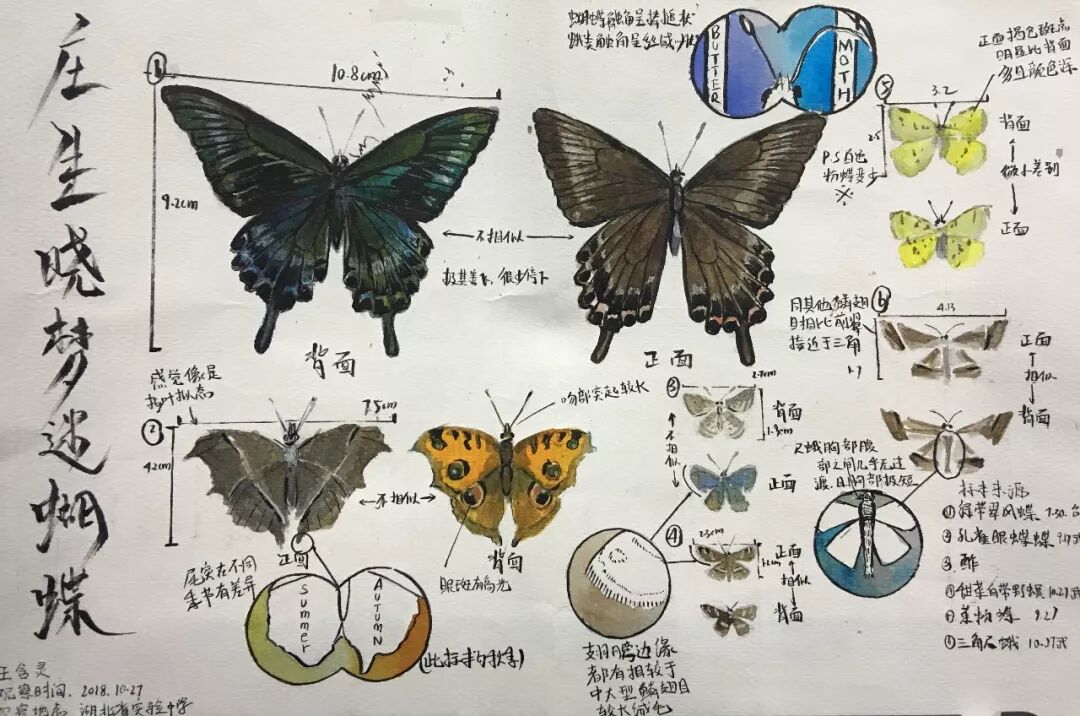 庄生晓梦迷蝴蝶
①
10.8cm
9.2cm
背面
←不相似→
极其善飞,很少停下
正面
蝴蝶触角呈棒槌状
BUTTER
MOTH
⑤
正面褐色斑点
明显比背面
多且颜色深
3.2
2.5
P.S白色
粉蝶变少
※
背面
微小差别
正面
⑥
同其他鳞翅
目相比前翼
接近于三角
4.13
1.7
正面
相似
背面
感觉像是
枯叶拟态
②
7.5cm
4.2cm
正面
←不相似→
吻部突起较长
背面
眼斑有高光
尾突在不同
季节有差异
Summer
AUTUMN
(此标本为秋季)
③
2.7cm
1.9cm
背面
不相似
正面
④
2.3cm
正面
相似
背面
翅膀边缘
都有相较于
中大型鳞翅目
较长绒毛
尺蛾胸部腹
部之间几乎无过
渡,且胸部极短
标本来源
① 绿带翠凤蝶 7.30.
② 孔雀眼蛱蝶
③ 酢
④ 甜菜白带野螟 10.27
9.27
三角尺蛾 10.27
王含灵
观察时间.2018.10.27
观察地点.湖北省实验中学